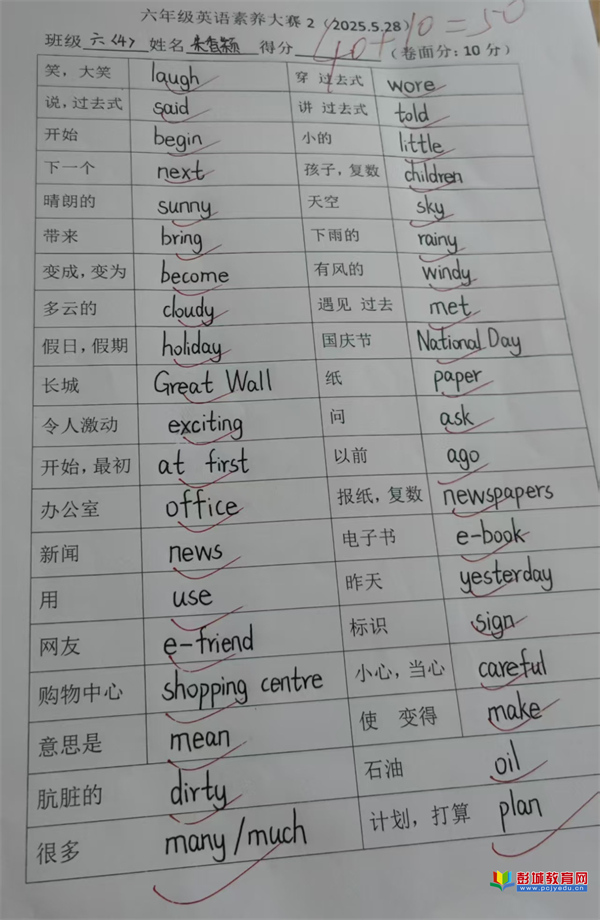 六年级英语素养大赛 2（2025.5.28）
班级 六（4） 姓名 朱智颖 得分 40+10=50 （卷面分：10 分）
笑，大笑 laugh 穿 过去式 wore
说，过去式 said 讲 过去式 told
开始 begin 小的 little
下一个 next 孩子，复数 children
晴朗的 sunny 天空 sky
带来 bring 下雨的 rainy
变成，变为 become 有风的 windy
多云的 cloudy 遇见 过去 met
假日，假期 holiday 国庆节 National Day
长城 Great Wall 纸 paper
令人激动 exciting 问 ask
开始，最初 at first 以前 ago
办公室 office 报纸，复数 newspapers
新闻 news 电子书 e-book
用 use 昨天 yesterday
网友 e-friend 标识 sign
购物中心 shopping centre 小心，当心 careful
意思是 mean 使 变得 make
肮脏的 dirty 石油 oil
很多 many/much 计划，打算 plan
彭城教育网
www.pcjyedu.cn